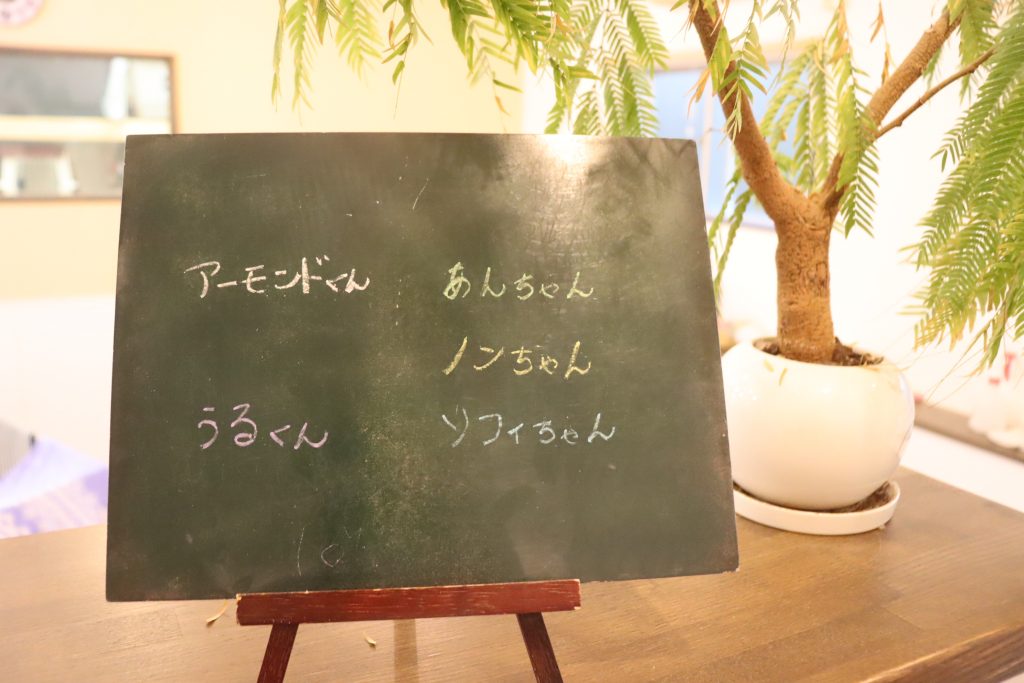 アーモンドくん あんちゃん
ノンちゃん
うるくん ソフィちゃん